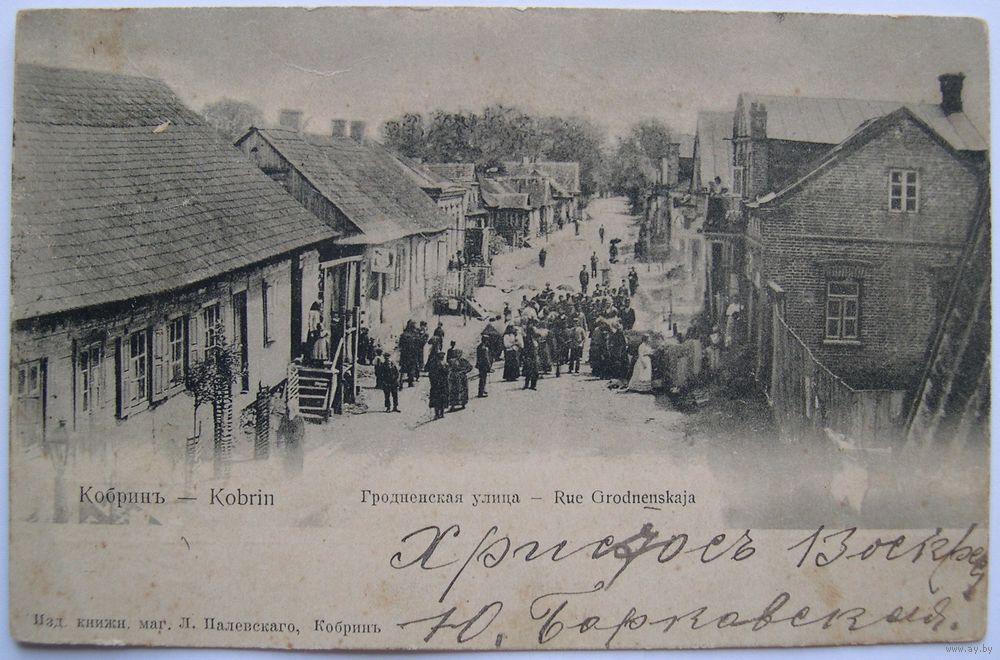 Кобринъ — Kobrin
Гродненская улица — Rue Grodnenskaja
Христосъ Воскрес
Ю. Барковская.
Изд. книжн. маг. Л. Палевскаго, Кобринъ
www.ay.by